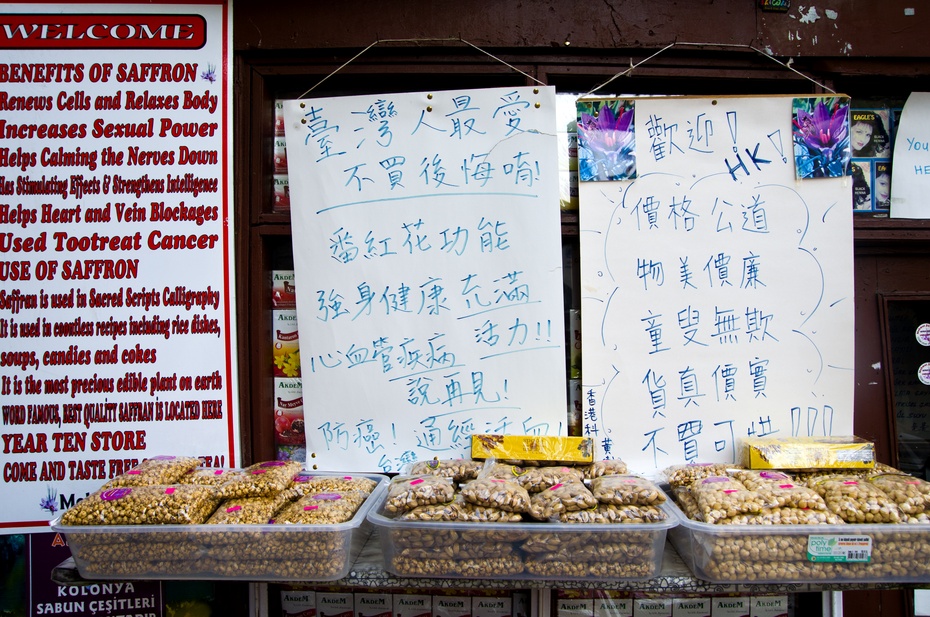 WELCOME
BENEFITS OF SAFFRON
Renews Cells and Relaxes Body
Increases Sexual Power
Helps Calming the Nerves Down
Has Stimulating Effects & Strengthens Intelligence
Helps Heart and Vein Blockages
Used Tootreat Cancer
USE OF SAFFRON
Saffron is used in Sacred Scripts Calligraphy
It is used in countless recipes including rice dishes,
soups, candies and cokes
It is the most precious edible plant on earth
WORD FAMOUS, BEST QUALITY SAFFRAN IS LOCATED HERE
YEAR TEN STORE
COME AND TASTE FREE
臺灣人最愛
不買後悔唷!
番紅花功能
強身健康充滿
活力!!
心血管疾病
說再見!
防癌!通經活血!
台灣
歡迎! HK!
價格公道
物美價廉
童叟無欺
貨真價實
不買可惜!!!
香港科
EAGLE'S
You
HE
AKDEM
AKDEM
AKDEM
polytime
KOLONYA
SABUN ÇEŞİTLERİ
AKDEM AKDEM AKDEM AKDEM AKDEM